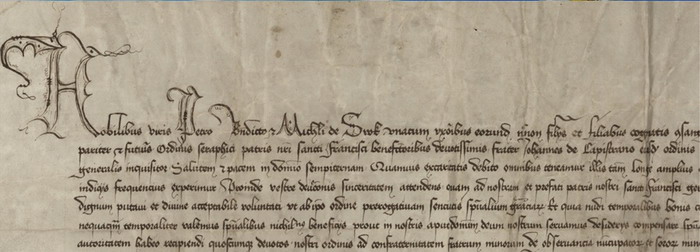 Nobilibus viris Petro Bndicto et Michli de Svok unacum uxoribus eorund necnon filijs et filiabus cognatis
pariter et futuris Ordinis seraphici patris nri sancti francisci benefactoribus devotissimis frater Johannes de Capistrano eiusd ordinis
generalis inquisitor Salutem et pacem in domino sempiternam Quamvis ex caritatis debito omnibus teneamur illis tam longe amplius
indigis frequentius experimur Proinde vestre devocionis sinceritatem attendens quam ad nostrum et prefati patris nostri sancti francisci
dignum putavi et divine acceptabile voluntati ut ab ipo ordine prerogativam senciatis spiritualium graciarum Et quia nudi temporalibus bonis
nequaquam temporaliter valemus spiritualibus beneficijs prout in nostris apud deum nostrum servamus desiderijs compensare
autoritatem habeo recipiendi quoscunque devotos nostri ordinis ad confraternitatem fratrum minorum de observancia nuncupatorum et sororum